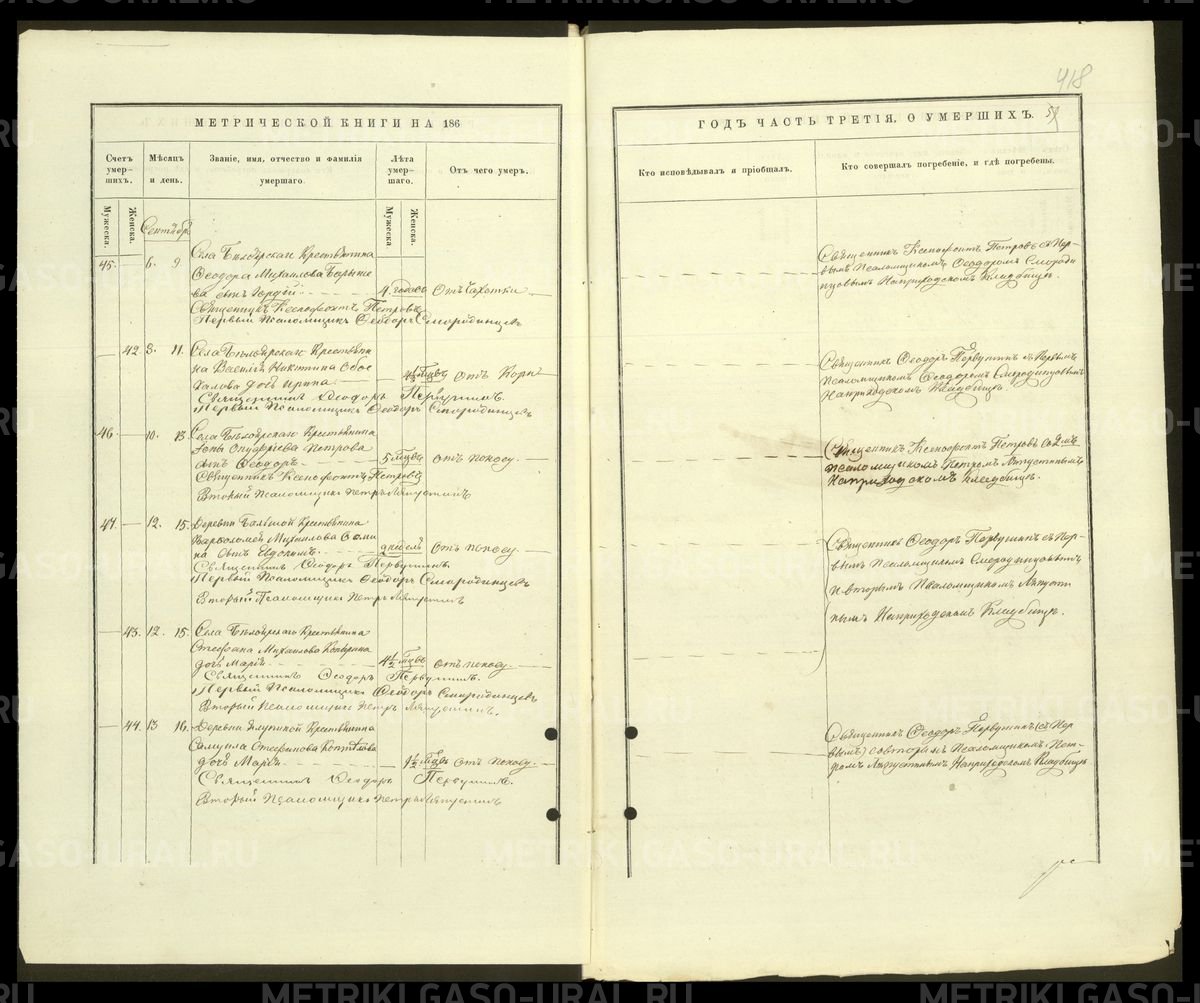 418
МЕТРИЧЕСКОЙ КНИГИ НА 186
Счетъ умер-шихъ.
Мѣсяцъ и день.
Званіе, имя, отчество и фамилія умершаго.
Лѣта умер-шаго.
Отъ чего умеръ.
Мужеска.
Женска.
Мужеска
Женска.
Сентябрь
45. — 6. 9.
Села Бѣлоярскаго Крестьянина
Ѳеодора Михаилова
сынъ
4 годовъ
Отъ Чахотки
Священникъ Ксенофонтъ Петровъ
Первый Псаломщикъ Ѳеодоръ Смородинцевъ
— 42 8. 11.
Села Бѣлоярскаго Крестьяни
на Василія Никитина
дочь Ирина.
4½ мцвъ
отъ Кори
Священникъ Ѳеодоръ Первушинъ.
Первый Псаломщикъ Ѳеодоръ Смородинцевъ
46. — 10. 13.
Села Бѣлоярскаго Крестьянина
Іоны Онуфріева Петрова
сынъ Ѳеодоръ.
5 мцвъ
отъ поносу.
Священникъ Ксенофонтъ Петровъ
Второй Псаломщикъ Петръ Ляпустинъ
47. — 12. 15.
Деревни Крестьянина
Варѳоломея Михаилова Ѳоми
на сынъ Евдокимъ.
9 недель
отъ поносу.
Священникъ Ѳеодоръ Первушинъ.
Первый Псаломщикъ Ѳеодоръ Смородинцевъ
Второй Псаломщикъ Петръ Ляпустинъ
— 43. 12. 15.
Села Бѣлоярскаго Крестьянина
Стефана Михаилова
дочь Марія.
4½ мцвъ
отъ поносу.
Священникъ Ѳеодоръ Первушинъ.
Первый Псаломщикъ Ѳеодоръ Смородинцевъ
Второй Псаломщикъ Петръ Ляпустинъ.
— 44. 13 16.
Деревни Крестьянина
Самуила Стефанова
дочь Марія
1½ мцвъ
отъ поносу.
Священникъ Ѳеодоръ Первушинъ.
Второй Псаломщикъ Петръ Ляпустинъ
ГОДЪ ЧАСТЬ ТРЕТІЯ, О УМЕРШИХЪ.
Кто исповѣдывалъ и пріобщалъ.
Кто совершалъ погребеніе, и гдѣ погребены.
Священникъ Ксенофонтъ Петровъ съ Пер-
вымъ Псаломщикомъ Ѳеодоромъ Смороди
нцовымъ На приходскомъ Кладбищѣ.
Священникъ Ѳеодоръ Первушинъ съ Первымъ
Псаломщикомъ Ѳеодоромъ Смородинцовымъ
На приходскомъ Кладбищѣ.
Священникъ Ксенофонтъ Петровъ съ 2мъ
псаломщикомъ Петромъ Ляпустинымъ
На приходскомъ Кладбищѣ.
Священникъ Ѳеодоръ Первушинъ съ Пер-
вымъ Псаломщикомъ Смородинцовымъ
и вторымъ Псаломщикомъ Ляпусти
нымъ На приходскомъ Кладбищѣ.
Священникъ Ѳеодоръ Первушинъ (съ Пер
вымъ) со вторымъ Псаломщикомъ Пет-
ромъ Ляпустинымъ На приходскомъ Кладбищѣ.
METRIKI.GASO-URAL.RU